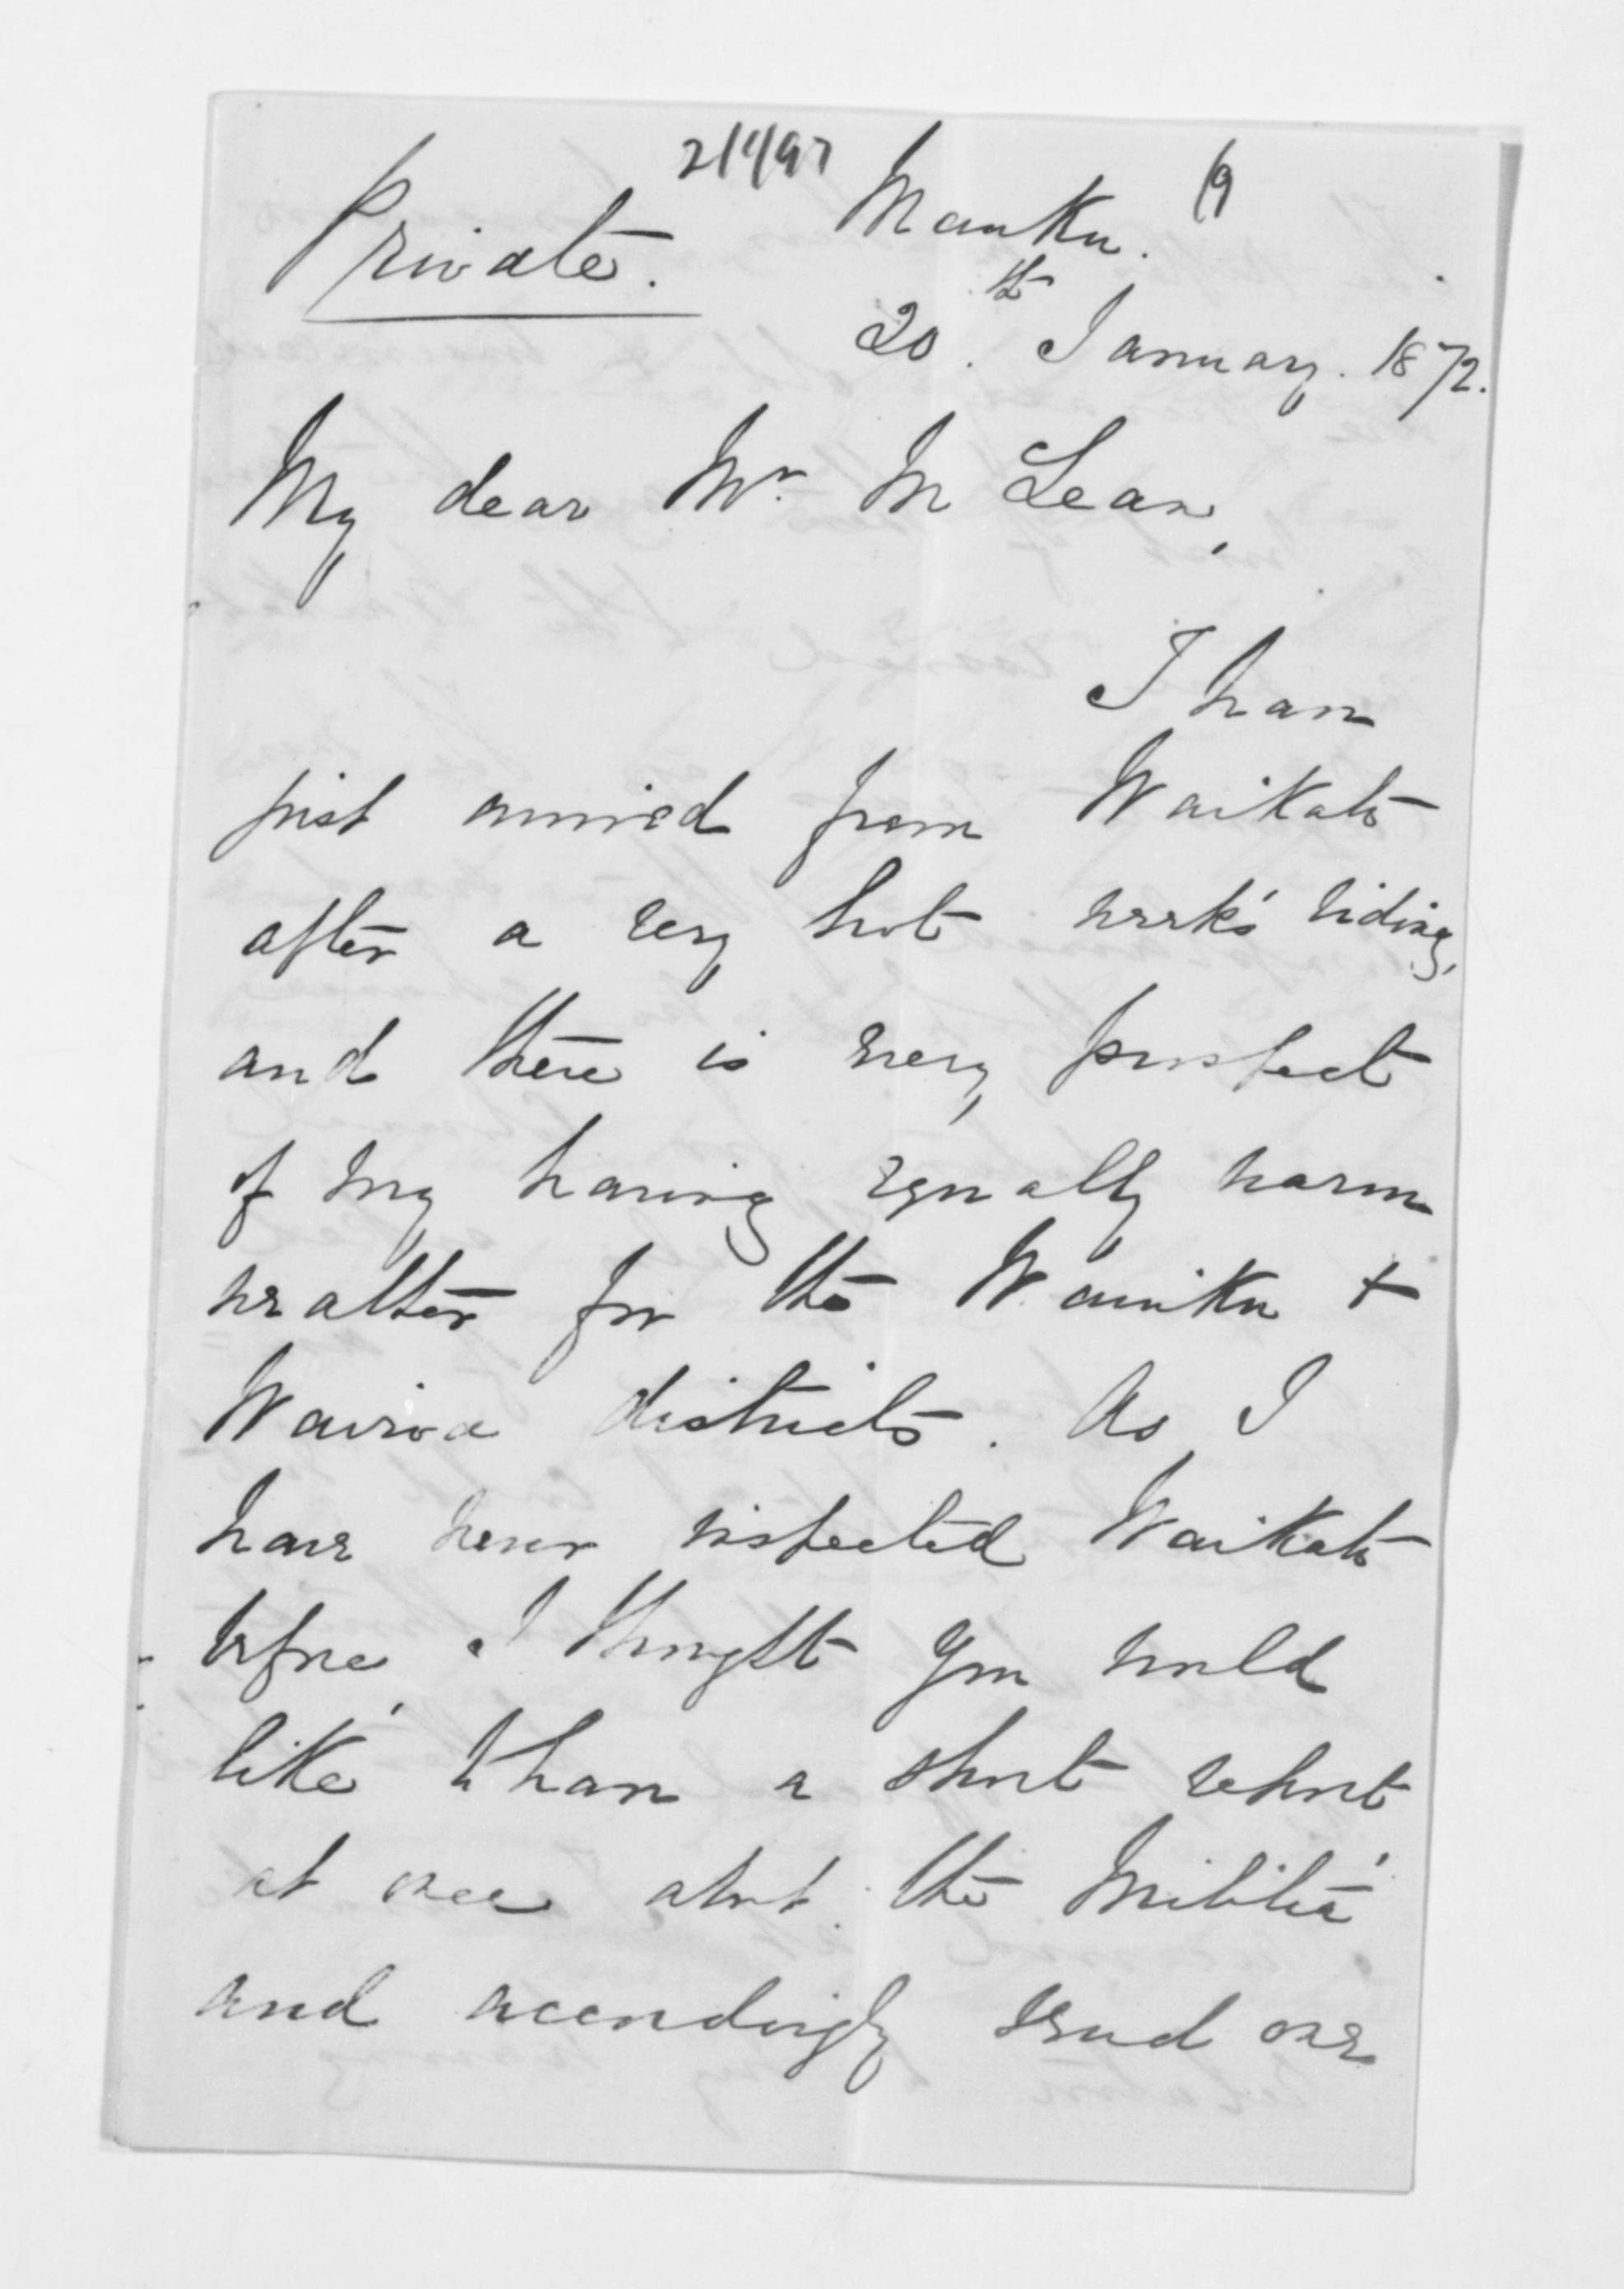 Private.
Mauku.
20th January. 1872.
My dear Mr. McLean,
I have
just arrived from Waikato
after a very hot week's riding,
and there is every prospect
of my having equally warm
weather for the Waiuku +
Wairoa districts. As I
have never inspected Waikato
before, I thought you would
like to have a short report
at once about the Militia
and accordingly send one